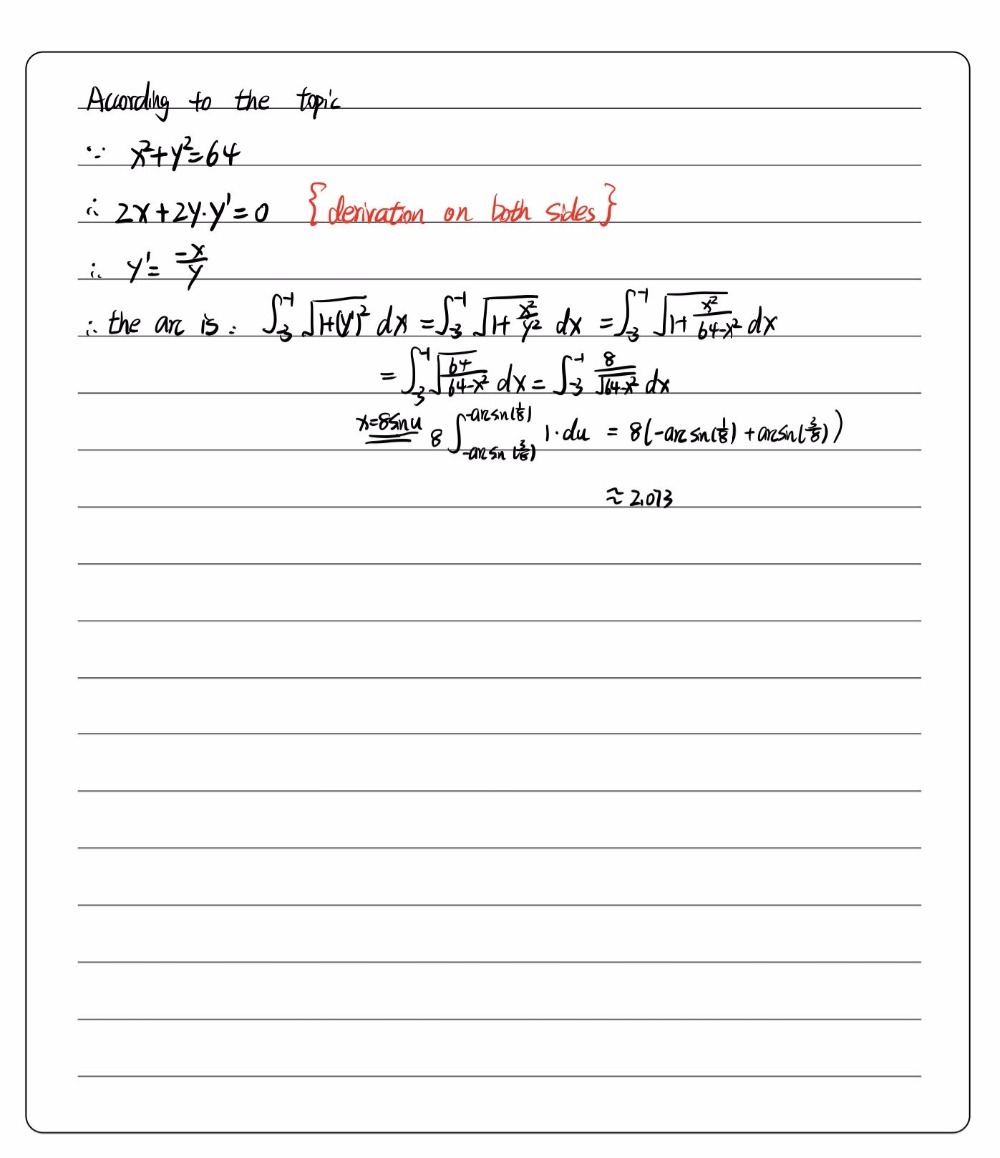 According to the topic
∵ x²+y²=64
∴ 2x+2y·y'=0 {derivation on both sides}
∴ y'= -x/y
∴ the arc is: ∫₋₃⁻¹ √(1+(y')²) dx = ∫₋₃⁻¹ √(1+x²/y²) dx = ∫₋₃⁻¹ √(1+x²/(64-x²)) dx
= ∫₋₃⁻¹ √(64/(64-x²)) dx = ∫₋₃⁻¹ 8/√(64-x²) dx
x=8sinu 8∫_{-arcsin(3/8)}^{-arcsin(1/8)} 1·du = 8(-arcsin(1/8)+arcsin(3/8))
≈ 2.073